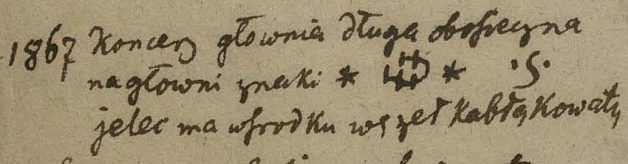 1867 Koncerz głownia długa obosieczna
na głowni znaki * * .S.
jelec ma w środku węzeł kabłąkowaty